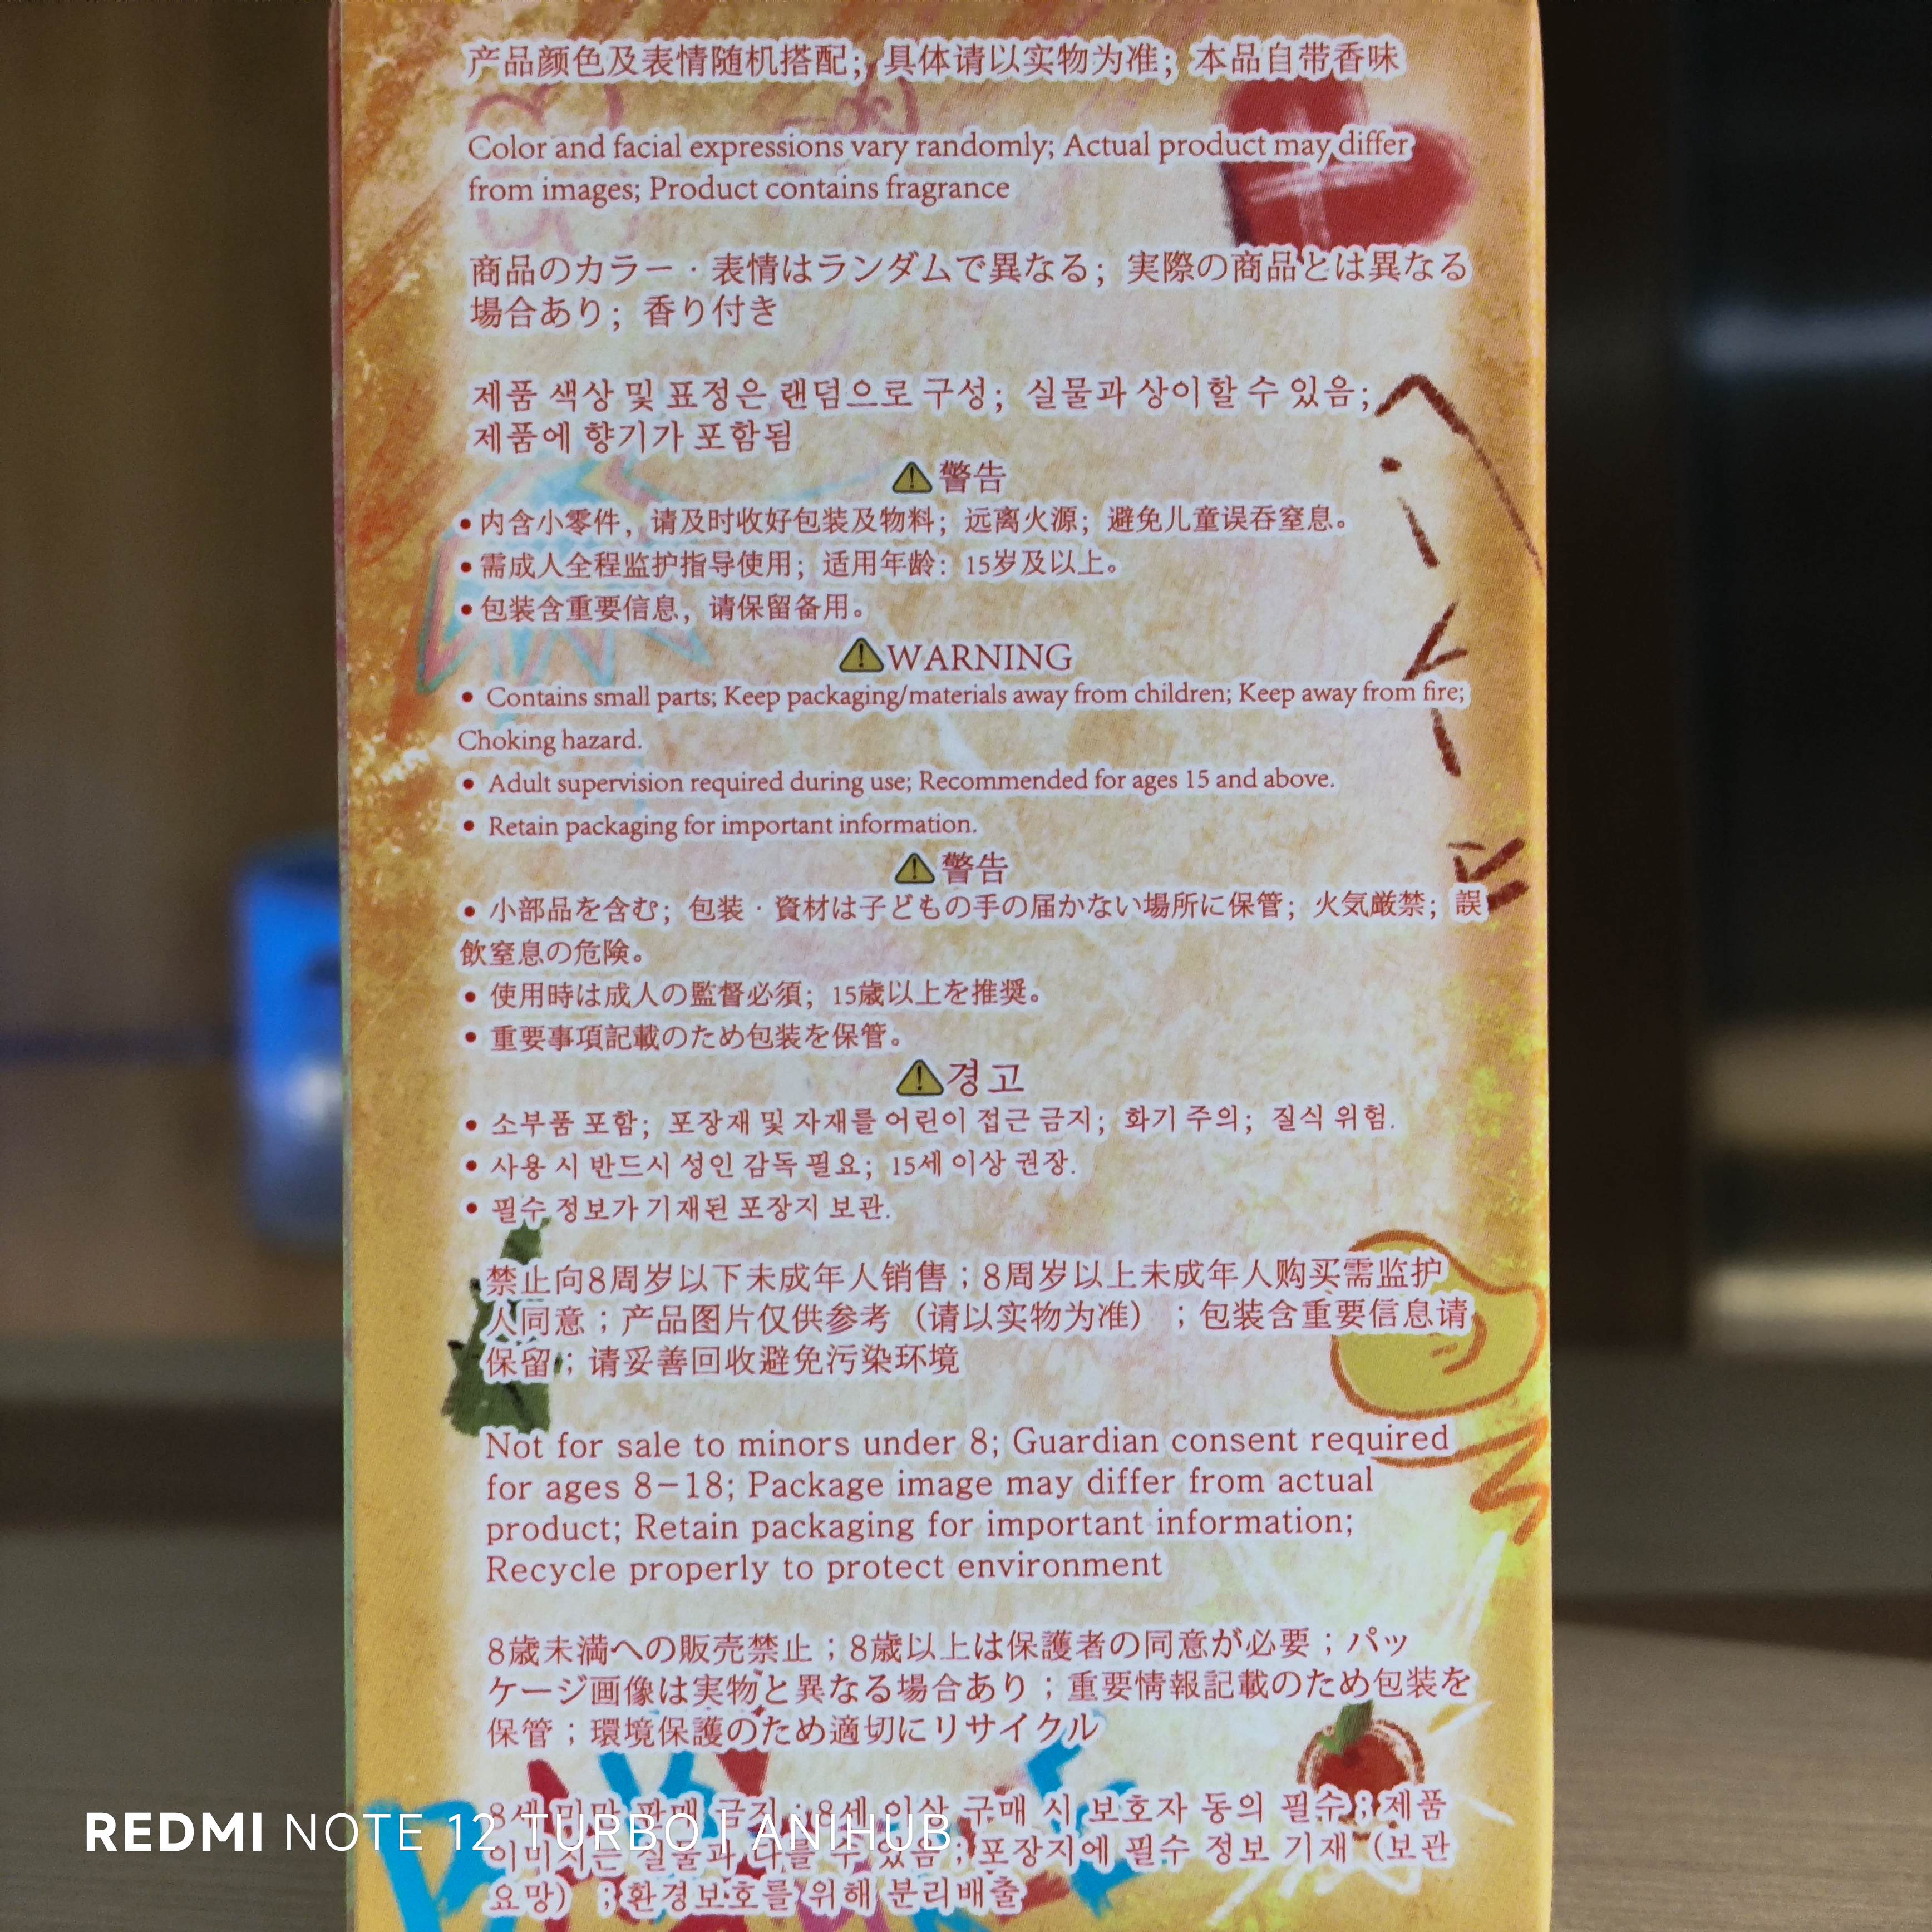 产品颜色及表情随机搭配；具体请以实物为准；本品自带香味
Color and facial expressions vary randomly; Actual product may differ
from images; Product contains fragrance
商品のカラー・表情はランダムで異なる；実際の商品とは異なる
場合あり；香り付き
제품 색상 및 표정은 랜덤으로 구성; 실물과 상이할 수 있음;
제품에 향기가 포함됨
⚠警告
• 内含小零件，请及时收好包装及物料；远离火源；避免儿童误吞窒息。
• 需成人全程监护指导使用；适用年龄：15岁及以上。
• 包装含重要信息，请保留备用。
⚠WARNING
• Contains small parts; Keep packaging/materials away from children; Keep away from fire;
Choking hazard.
• Adult supervision required during use; Recommended for ages 15 and above.
• Retain packaging for important information.
⚠警告
• 小部品を含む；包装・資材は子どもの手の届かない場所に保管；火気厳禁；誤
飲窒息の危険。
• 使用時は成人の監督必須；15歳以上を推奨。
• 重要事項記載のため包装を保管。
⚠경고
• 소부품 포함; 포장재 및 자재를 어린이 접근 금지; 화기 주의; 질식 위험.
• 사용 시 반드시 성인 감독 필요; 15세 이상 권장.
• 필수 정보가 기재된 포장지 보관.
禁止向8周岁以下未成年人销售；8周岁以上未成年人购买需监护
人同意；产品图片仅供参考（请以实物为准）；包装含重要信息请
保留；请妥善回收避免污染环境
Not for sale to minors under 8; Guardian consent required
for ages 8-18; Package image may differ from actual
product; Retain packaging for important information;
Recycle properly to protect environment
8歳未満への販売禁止；8歳以上は保護者の同意が必要；パッ
ケージ画像は実物と異なる場合あり；重要情報記載のため包装を
保管；環境保護のため適切にリサイクル
8세 미만 판매 금지；8세 이상 구매 시 보호자 동의 필수；제품
이미지는 실물과 다를 수 있음；포장지에 필수 정보 기재（보관
요망）；환경보호를 위해 분리배출
REDMI NOTE 12 TURBO | ANIHUB